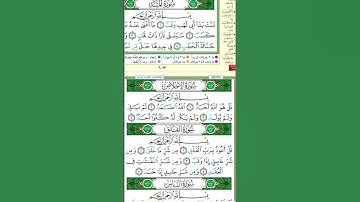 سُورَةُ المَسَدِ
بِسْمِ اللَّهِ الرَّحْمَٰنِ الرَّحِيمِ
تَبَّتْ يَدَا أَبِي لَهَبٍ وَتَبَّ ۝ مَا أَغْنَىٰ عَنْهُ
كَسَبَ ۝ سَيَصْلَىٰ نَارًا ذَاتَ لَهَبٍ ۝
حَمَّالَةَ الْحَطَبِ ۝ فِي جِيدِهَا حَبْلٌ مِّن
سُورَةُ الإِخْلَاصِ
بِسْمِ اللَّهِ الرَّحْمَٰنِ الرَّحِيمِ
قُلْ هُوَ اللَّهُ أَحَدٌ ۝ اللَّهُ الصَّمَدُ ۝ لَمْ يَلِدْ
وَلَمْ يُولَدْ ۝ وَلَمْ يَكُن لَّهُ كُفُوًا أَحَدٌ ۝
سُورَةُ الفَلَقِ
بِسْمِ اللَّهِ الرَّحْمَٰنِ الرَّحِيمِ
قُلْ أَعُوذُ بِرَبِّ الْفَلَقِ ۝ مِن شَرِّ مَا خَلَقَ ۝ وَمِن شَرِّ
غَاسِقٍ إِذَا وَقَبَ ۝ وَمِن شَرِّ النَّفَّٰثَٰتِ فِي
الْعُقَدِ ۝ وَمِن شَرِّ حَاسِدٍ إِذَا حَسَدَ ۝
سُورَةُ النَّاسِ
بِسْمِ اللَّهِ الرَّحْمَٰنِ الرَّحِيمِ